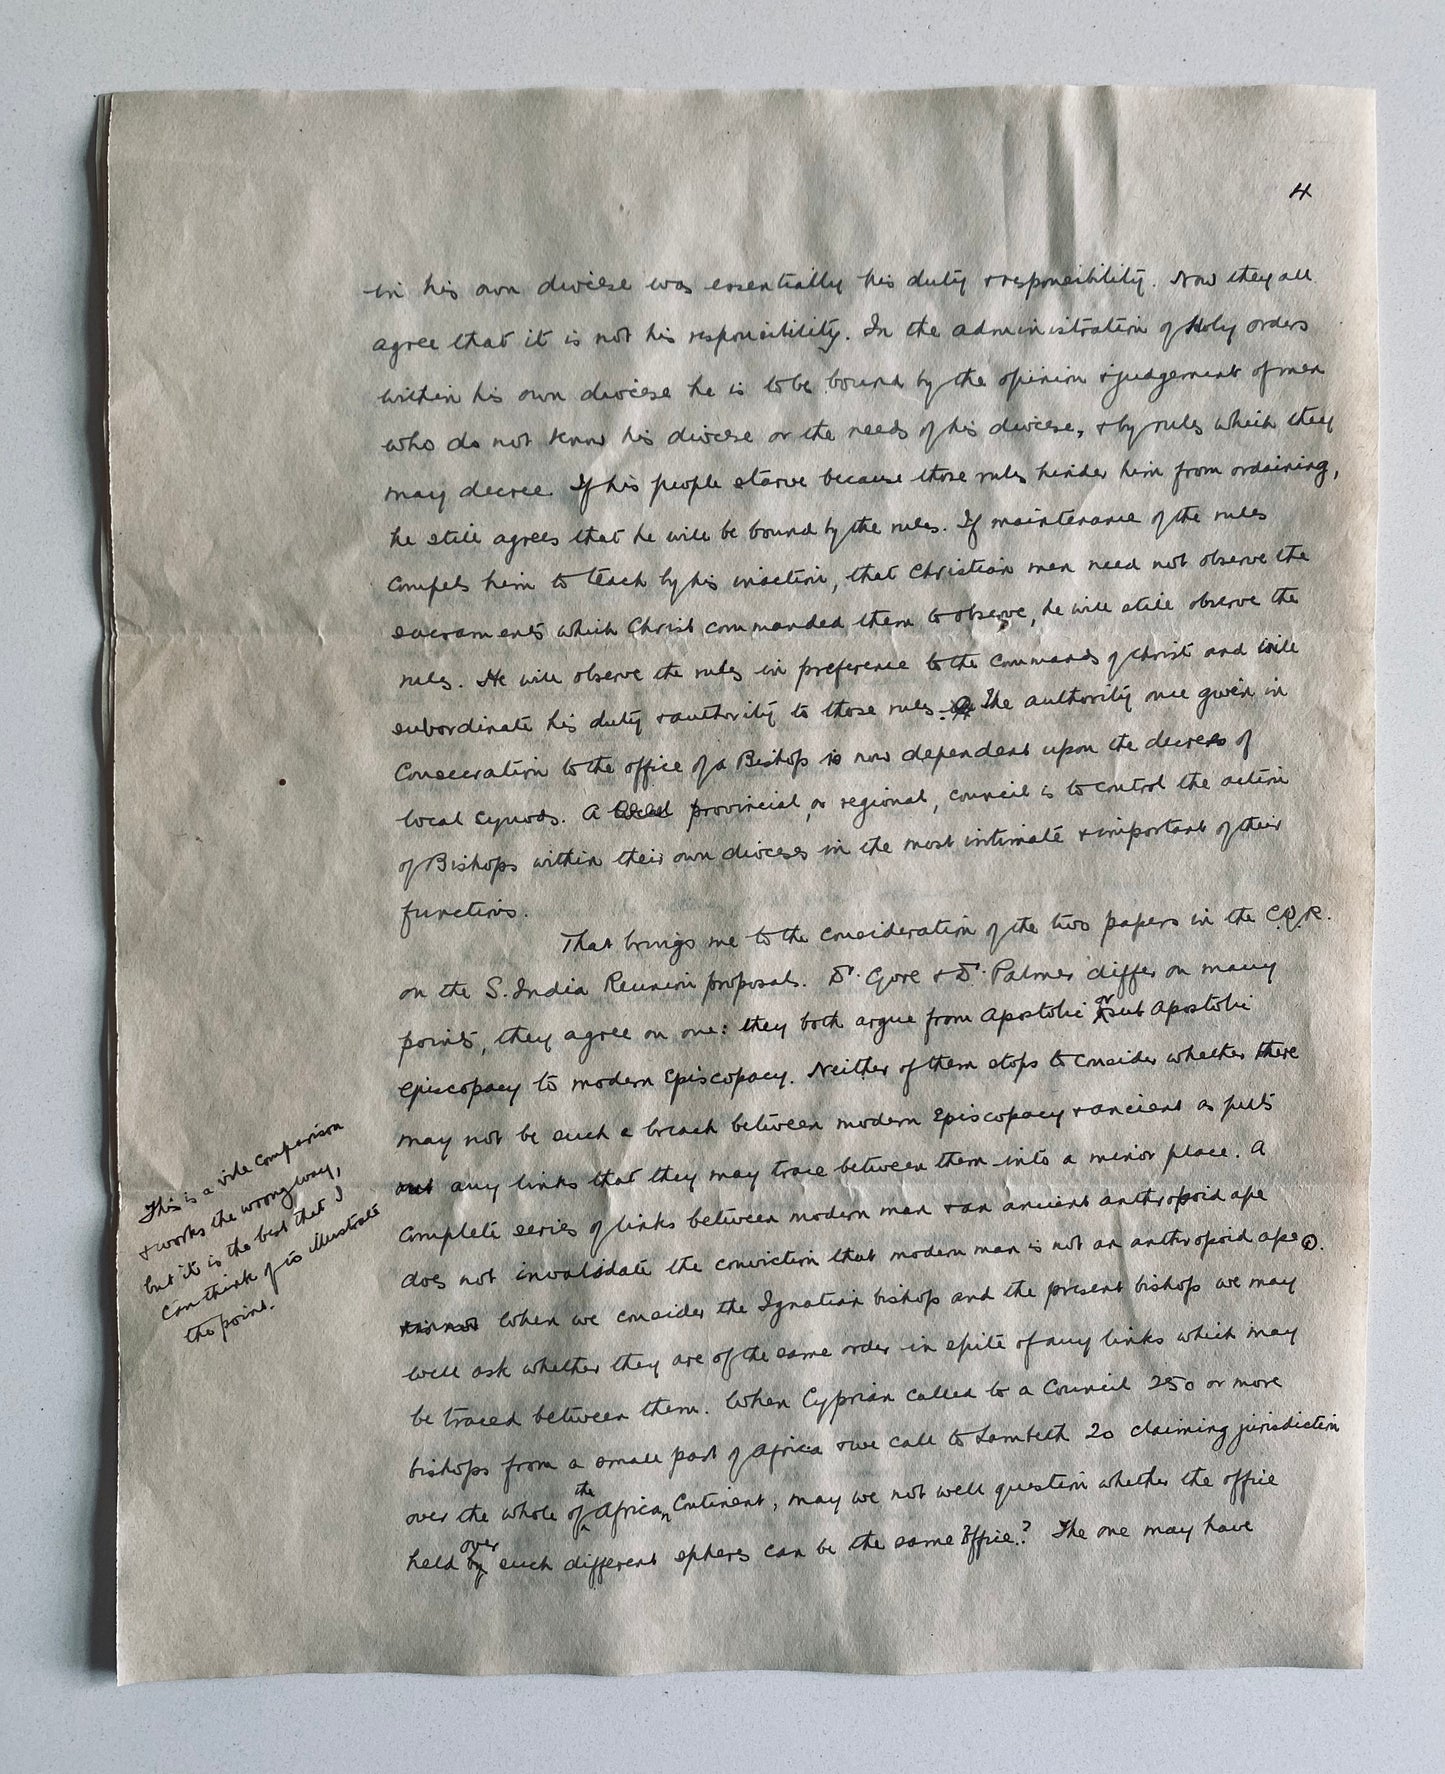 4
in his own diocese was essentially his duty & responsibility. Now they all
agree that it is not his responsibility. In the administration of Holy orders
within his own diocese he is to be bound by the opinion & judgement of men
who do not know his diocese or the needs of his diocese, & by rules which they
may decree. If his people starve because those rules hinder him from ordaining,
he still agrees that he will be bound by the rules. If maintenance of the rules
compels him to teach by his inaction, that Christian men need not observe the
sacraments which Christ commanded them to observe, he will still observe the
rules. He will observe the rules in preference to the commands of Christ and will
subordinate his duty & authority to those rules. The authority once given in
Consecration to the office of a Bishop is now dependent upon the decrees of
local synods. A local provincial, or regional, council is to control the action
of Bishops within their own dioceses in the most intimate & important of their
functions.
That brings me to the consideration of the two papers in the C.Q.R.
on the S. India Reunion proposals. Dr. Gore & Dr. Palmer differ on many
points, they agree on one: they both argue from Apostolic or sub Apostolic
episcopacy to modern Episcopacy. Neither of them stops to consider whether there
may not be such a breach between modern Episcopacy & ancient as puts
any links that they may trace between them into a minor place. A
complete series of links between modern man & an ancient anthropoid ape
does not invalidate the conviction that modern man is not an anthropoid ape.
When we consider the Ignatian bishop and the present bishop we may
well ask whether they are of the same order in spite of any links which may
be traced between them. When Cyprian called to a Council 250 or more
bishops from a small part of Africa & we call to Lambeth 20 claiming jurisdiction
over the whole of the African Continent, may we not well question whether the office
held by over such different spheres can be the same office? The one may have
This is a vile comparison
& works the wrong way,
but it is the best that I
can think of to illustrate
the point.